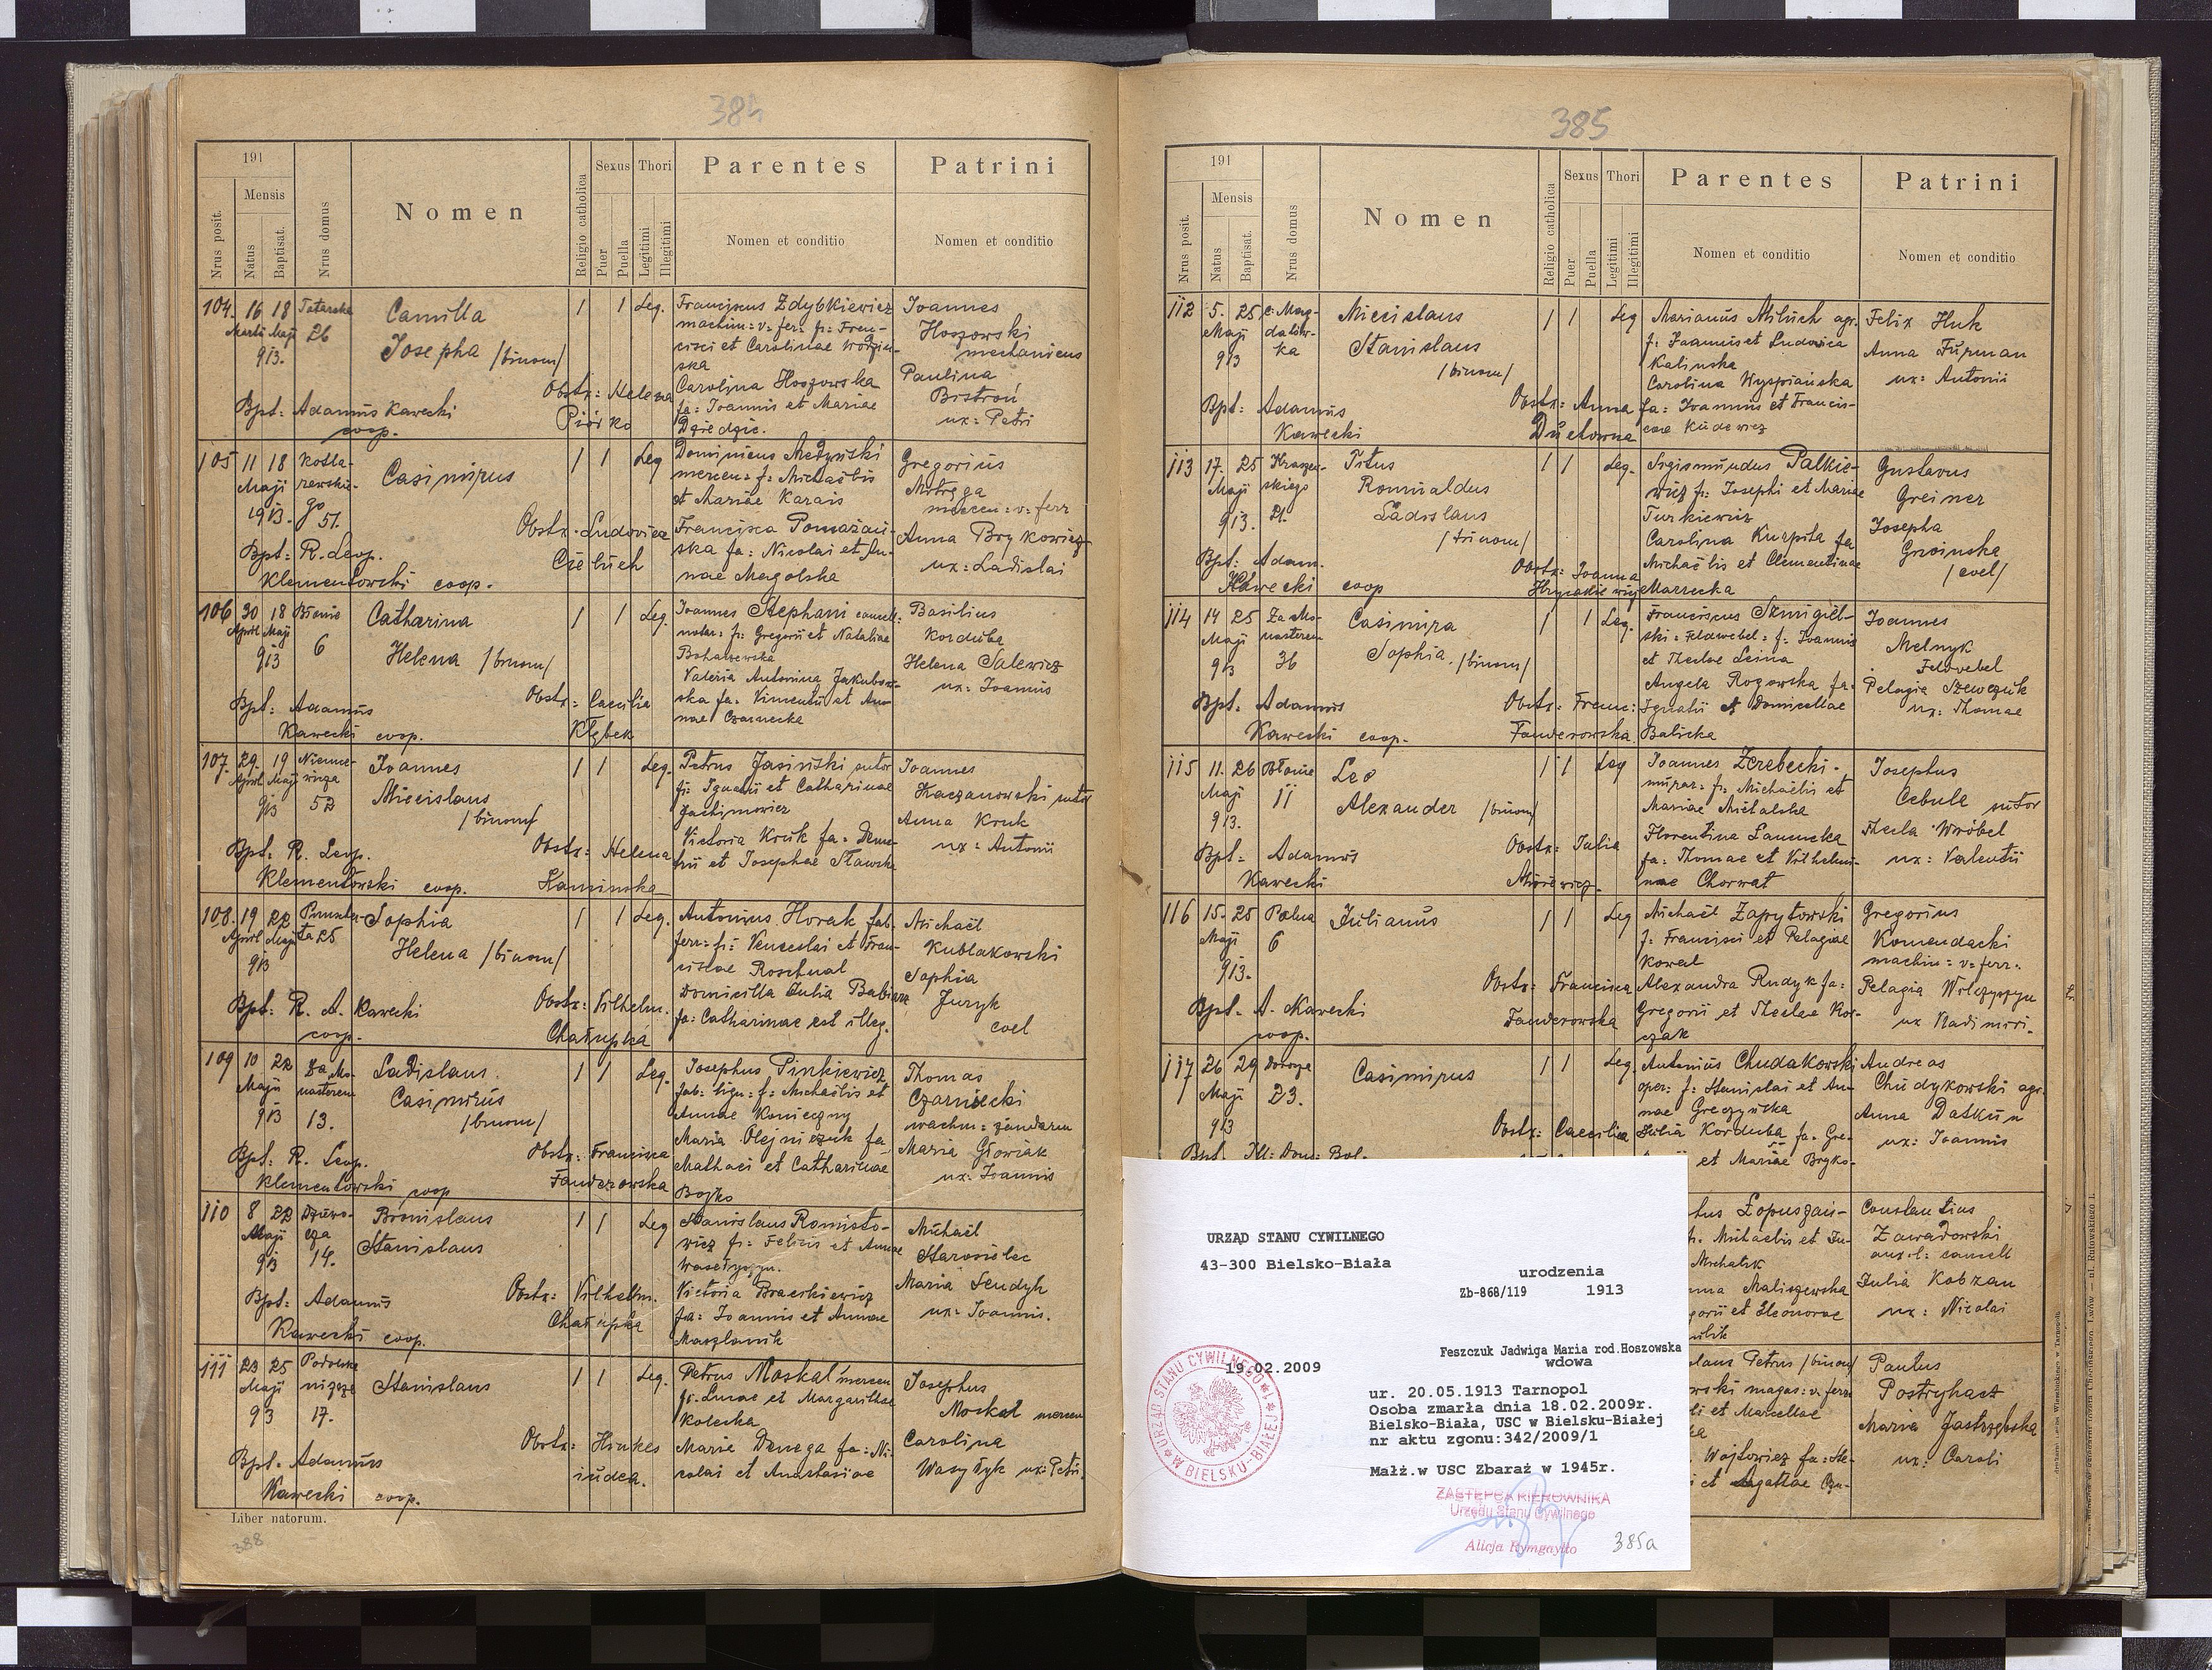 384
191
Sexus Thori
Parentes
Patrini
Mensis
Nomen
Nrus posit.
Natus
Baptisat.
Nrus domus
Religio catholica
Puer
Puella
Legitimi
Illegitimi
Nomen et conditio
Nomen et conditio
104. 16 18 Tatarska Camilla 1 1 Leg. Franciscus Zdybkiewicz Joannes
Martii Maji 26 Josepha /binom/ machin: v: fer: f: Fran- Hoszowski
913. cisci et Carolinae mechanicus
ska Paulina
Obstx: Helena Carolina Hoszowska Bistroń
Bpt: Adamus Kawecki Piórko fa: Joannis et Mariae ux: Petri
coop. Dziedzic.
105 11 18 Kotla- Casimirus 1 1 Leg Dominicus Medyński Gregorius
Maji rewskie- mercen: f: Michaëlis Mitręga
1913. go 51. et Mariae Karais mercen: v: ferr
Obstx. Ludovica Francisca Pomażań- Anna Brykowicz
Bpt: R. Leop. Ciebuch ska fa: Nicolai et An- ux: Ladislai
Klementowski coop. nae Magolska
106 30 18 Błonie Catharina 1 1 Leg. Joannes Stephani cancell: Basilius
April Maji 6 Helena /binom/ notar: f: Gregorii et Nataliae Korduba
913 Helena Salewicz
Valeria Antonina Jakubow- ux: Joannis
Bpt: Adamus Obstx: Caecilia ska fa: Vincentii et An-
Kawecki coop. Kłębek nae Czarnecka
107. 29. 19 Joannes 1 1 Leg. Petrus Jasiński sutor Joannes
April Maji 52 Miecislaus f: Ignatii et Catharinae Kaczanowski sutor
913 /binom/ Jachimowicz Anna Kruk
Bpt: R. Leop. Obstx: Helena Victoria Kruk fa: Deme- ux: Antonii
Klementowski coop. Kaminska trii et Josephae Sławska
108. 19 22 Sophia 1 1 Leg. Antonius Horak fab. Michaël
April Maji 25 Helena /binom/ ferr: f: Venceslai et Fran- Kublakowski
913 ciscae Roschnal Sophia
Domicilla Julia Babiarz Juryk
Bpt: R. A. Kawecki Obstx: Vilhelm. fa: Catharinae est illeg. coel
coop. Chałupka
109 10 22 Za Mo- Ladislaus 1 1 Leg. Josephus Pinkiewicz Thomas
Maji nasterem Casimirus fab: lign: f: Michaëlis et Czarniecki
913 13. /binom/ Annae Konieczny wachm: żandarm
Maria Olejniczuk fa Maria Głowiak
Bpt: R. Leop. Obstx: Francisca Mathaei et Catharinae ux: Joannis
Klementowski coop Fanderowska Bojko
110 8 22 Bronislaus 1 1 Leg Stanislaus Romisto- Michaël
Maji 14. Stanislaus wicz f: Felicis et Annae Starosolec
913 Maria Sendyk
Bpt: Adamus Obstx: Vilhelm. Victoria Brackiewicz ux: Joannis.
Kawecki coop. Chałupka fa: Joannis et Annae
Maszlanik
111 23 25 Stanislaus 1 1 Leg. Petrus Moskal mercen Josephus
Maji 17. f: Lucae et Margarithae Moskal mercen
93 Kolecka Carolina
Obstx: Hinkes Maria Denega fa: Ni- Wasylyk ux: Petri.
Bpt. Adamus iudea. colai et Anastasiae
Kawecki coop.
Liber natorum.
388
385
191
Sexus Thori
Parentes
Patrini
Mensis
Nomen
Nrus posit.
Natus
Baptisat.
Nrus domus
Religio catholica
Puer
Puella
Legitimi
Illegitimi
Nomen et conditio
Nomen et conditio
112 5. 25 Miecislaus 1 1 Leg Marianus Miluch agr. Felix Huk
Maji Stanislaus f: Joannis et Ludovica Anna Furman
913 /binom/ Kalinska ux: Antonii
Carolina Wyspiańska
Bpt: Adamus Obstx: Anna fa: Joannis et Francis-
Kawecki cae Kudewicz
113 17. 25 Kraszew- Titus 1 1 Leg. Sigismundus Palkie- Gustavus
Maji skiego Romualdus wicz f: Josephi et Mariae Greiner
913. 21. Ladislaus Turkiewicz Josepha
/trinom/ Carolina Kurpita fa Gwoinska
Bpt: Adam. Obstx: Joanna Michaëlis et Clementinae /coel/
Kawecki coop Marecka
114 14 25 Za Mo- Casimira 1 1 Leg. Franciscus Szmigiel- Joannes
Maji nasterem Sophia. /binom/ ski: Feldwebel: f: Joannis Melnyk
913 36 et Theclae Leina Feldwebel
Angela Rozowska fa: Pelagia Szewczuk
Bpt: Adamus Obstx: Franc: Ignatii et Domicellae ux: Thomae
Kawecki coop. Fanderowska. Balicka
115 11. 26 Błonie Leo 1 1 Leg Joannes Zerebecki. Josephus
Maji 11 Alexander /binom/ murar: f: Michaëlis et Cebula sutor
913. Mariae Michalska Thecla Wróbel
Bpt: Adamus Obstx: Julia Florentina ux: Valentii
Kawecki fa: Thomae et Vilhelmi-
nae Chorwat
116 15. 25 Polna Julianus 1 1 Leg Michaël Zapytowski Gregorius
Maji 6 f: Francisci et Pelagiae Komendacki
913. Kowal machin: v: ferr:
Obstx: Francisca Alexandra Rudyk fa: Pelagia Wilczyszyn
Bpt. A. Kawecki Fanderowska Gregorii et Theclae Kor- ux Vladimiri.
coop. czak
117 26 29 23. Casimirus 1 1 Leg. Antonius Chudakowski Andreas
Maji oper: f: Stanislai et An- Chudykowski agr.
913 nae Greczyńska Anna Datkun
Obstx: Caecilia Julia Korduba fa: Gre- ux: Joannis
Bpt. Ill: Dom: Bol- et Mariae Bryko-
Łopuszań- Constantius
Michaelis et Ju- Zawadowski
Michalik aux: l: cancell
Maliszewska Julia Kobzan
et Eleonorae ux: Nicolai
Petrus /binom/ Paulus
magaz: v: ferr Postryhacz
et Marcellae Maria Jastrzębska
Wojtowicz fa: Ste- ux: Caroli
et Agathae
URZĄD STANU CYWILNEGO
43-300 Bielsko-Biała
urodzenia
Zb-868/119 1913
Feszczuk Jadwiga Maria rod.Hoszowska
wdowa
19.02.2009
ur. 20.05.1913 Tarnopol
Osoba zmarła dnia 18.02.2009r.
Bielsko-Biała, USC w Bielsku-Białej
nr aktu zgonu:342/2009/1
Małż.w USC Zbaraż w 1945r.
ZASTĘPCA KIEROWNIKA
Urzędu Stanu Cywilnego
Alicja Rymgayłło
385a
URZĄD STANU CYWILNEGO
W BIELSKU-BIAŁEJ